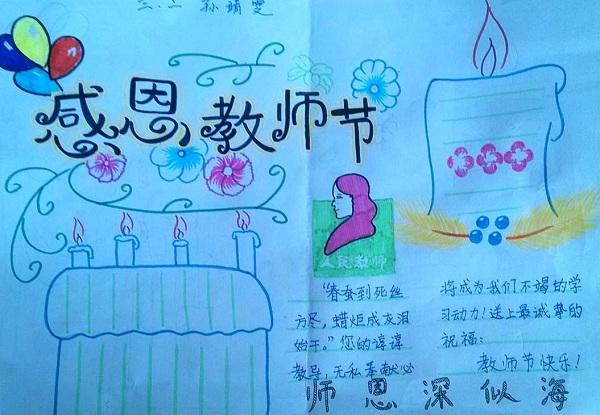 三.二 孙靖雯
感恩教师节
人民教师
“春蚕到死丝
方尽，蜡炬成灰泪
始干。”您的谆谆
教导，无私奉献必
将成为我们不竭的学
习动力！送上最诚挚的
祝福：
教师节快乐！
师恩深似海